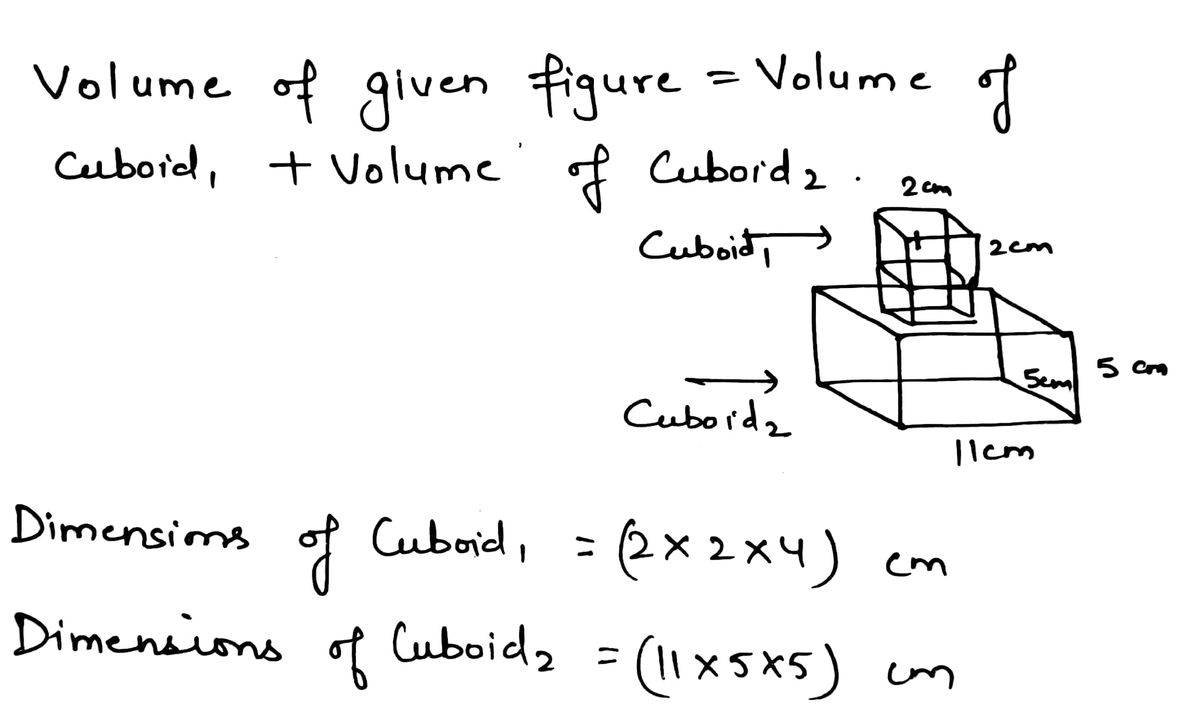 Volume of given figure = Volume of
Cuboid₁ + Volume of Cuboid₂.
2cm
Cuboid₁ →
2cm
5cm
5 cm
→
Cuboid₂
11cm
Dimensions of Cuboid₁ = (2×2×4) cm
Dimensions of Cuboid₂ = (11×5×5) cm